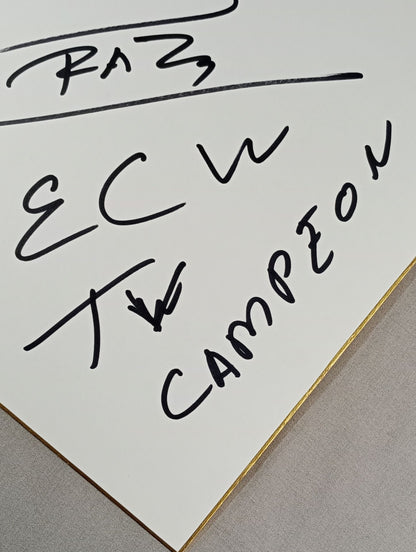 RAZ
ECW
TV
CAMPEON